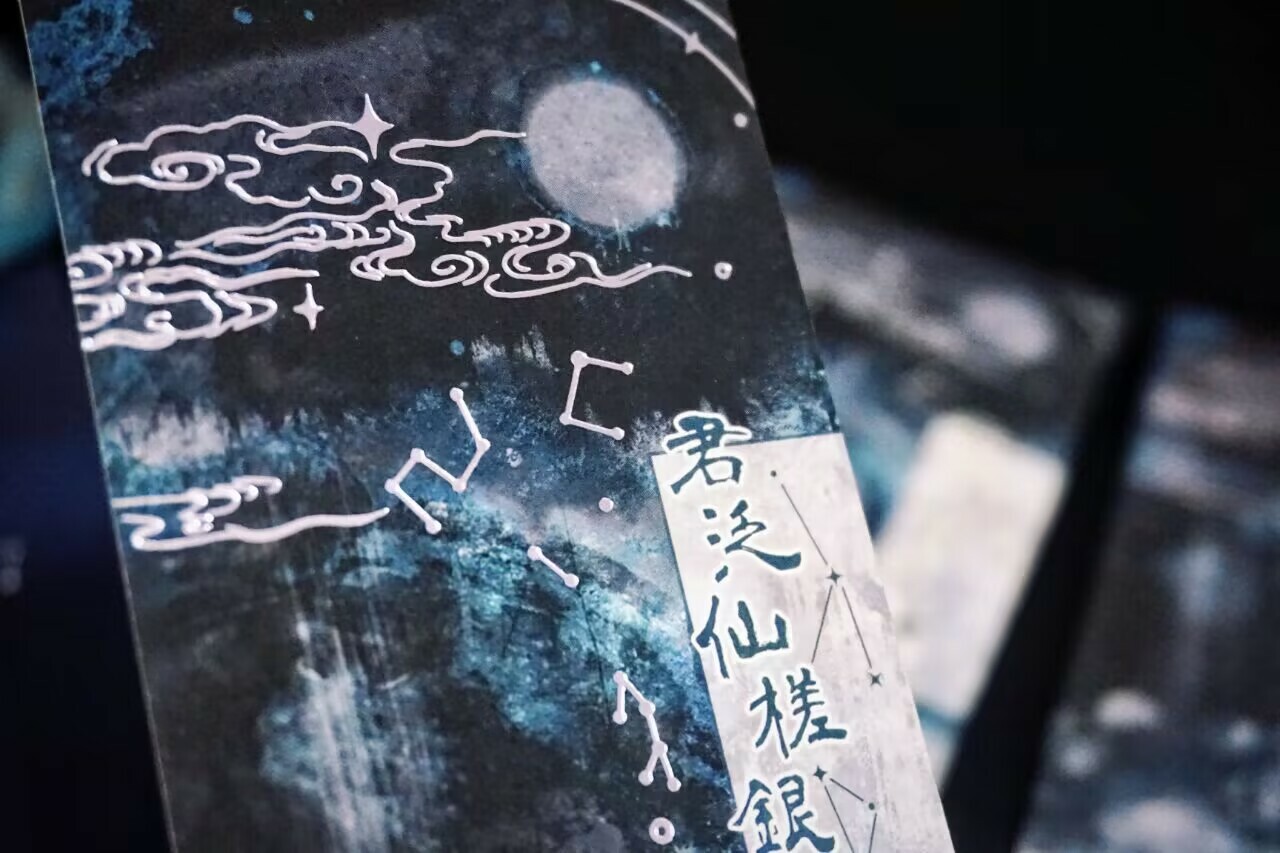 君泛仙槎銀